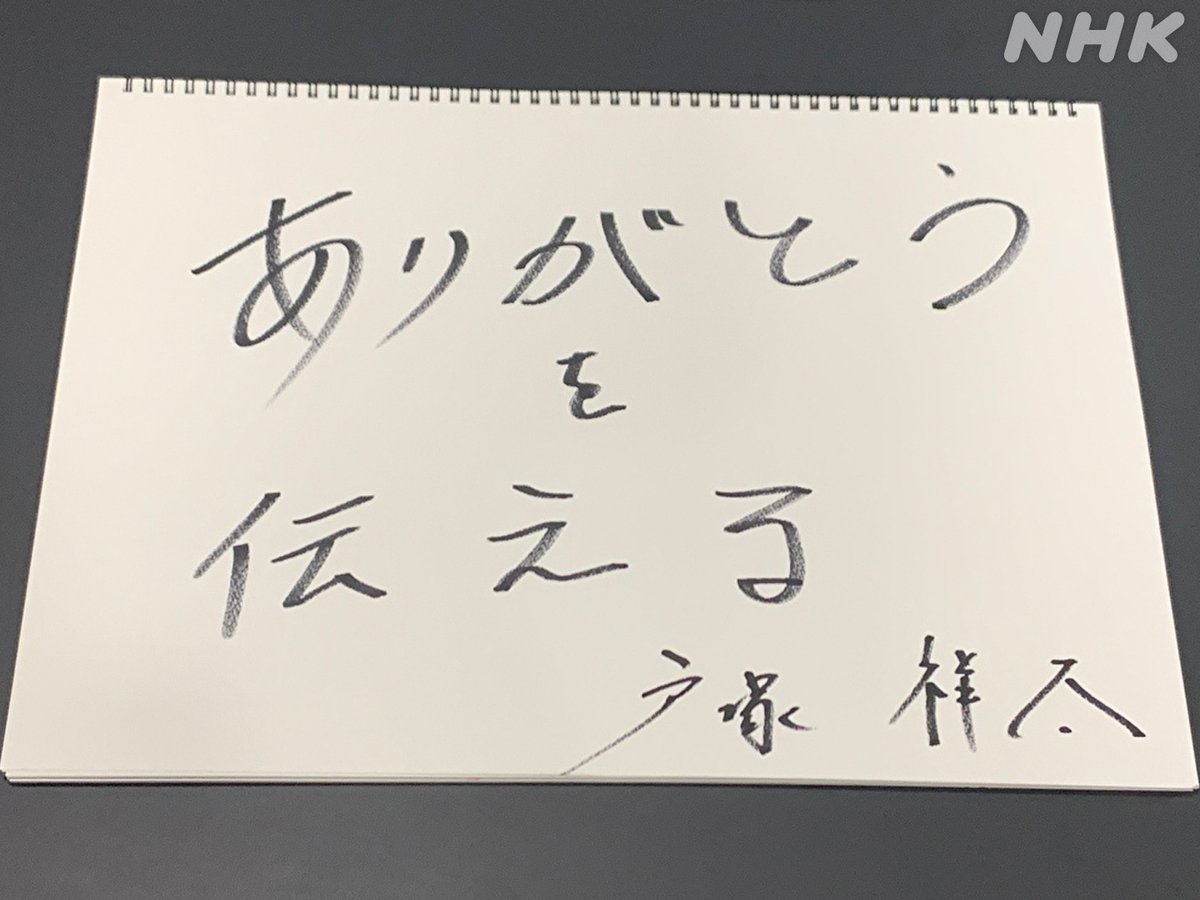 NHK
ありがとう
を
伝える
戸塚 祥太